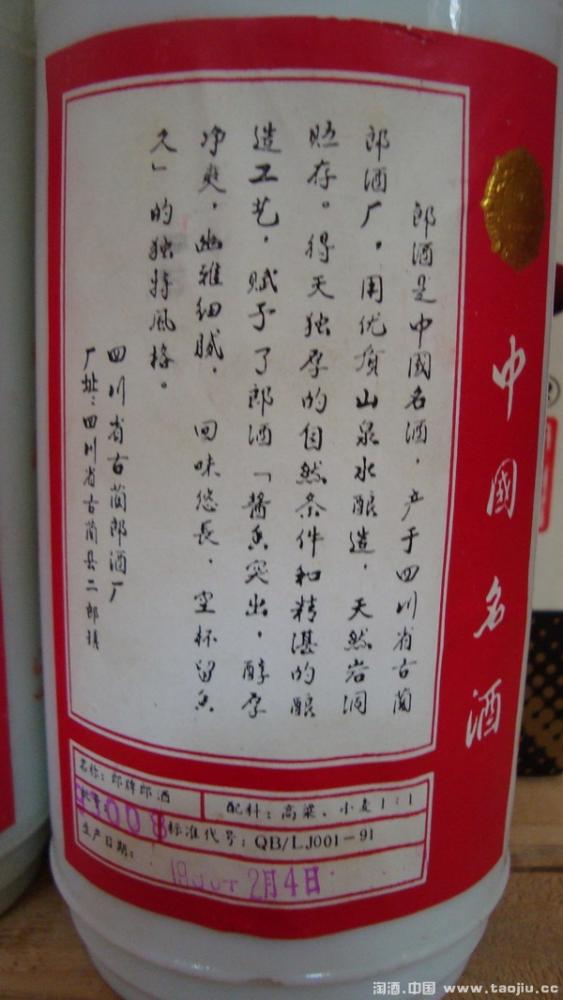 郎酒是中國名酒，产于四川省古蔺
郎酒厂。用优质山泉水酿造，天然岩洞
贮存。得天独厚的自然条件和精湛的酿
造工艺，赋予了郎酒「酱香突出，醇厚
净爽，幽雅细腻，回味悠長，空杯留香
久」的独特风格。
四川省古蔺郎酒厂
厂址：四川省古蔺县二郎镇
中國名酒
名称：郎牌郎酒
配料：高粱、小麦1:1
008
标准代号：QB/LJ001-91
生产日期：
2月4日
淘酒.中国 www.taojiu.cc